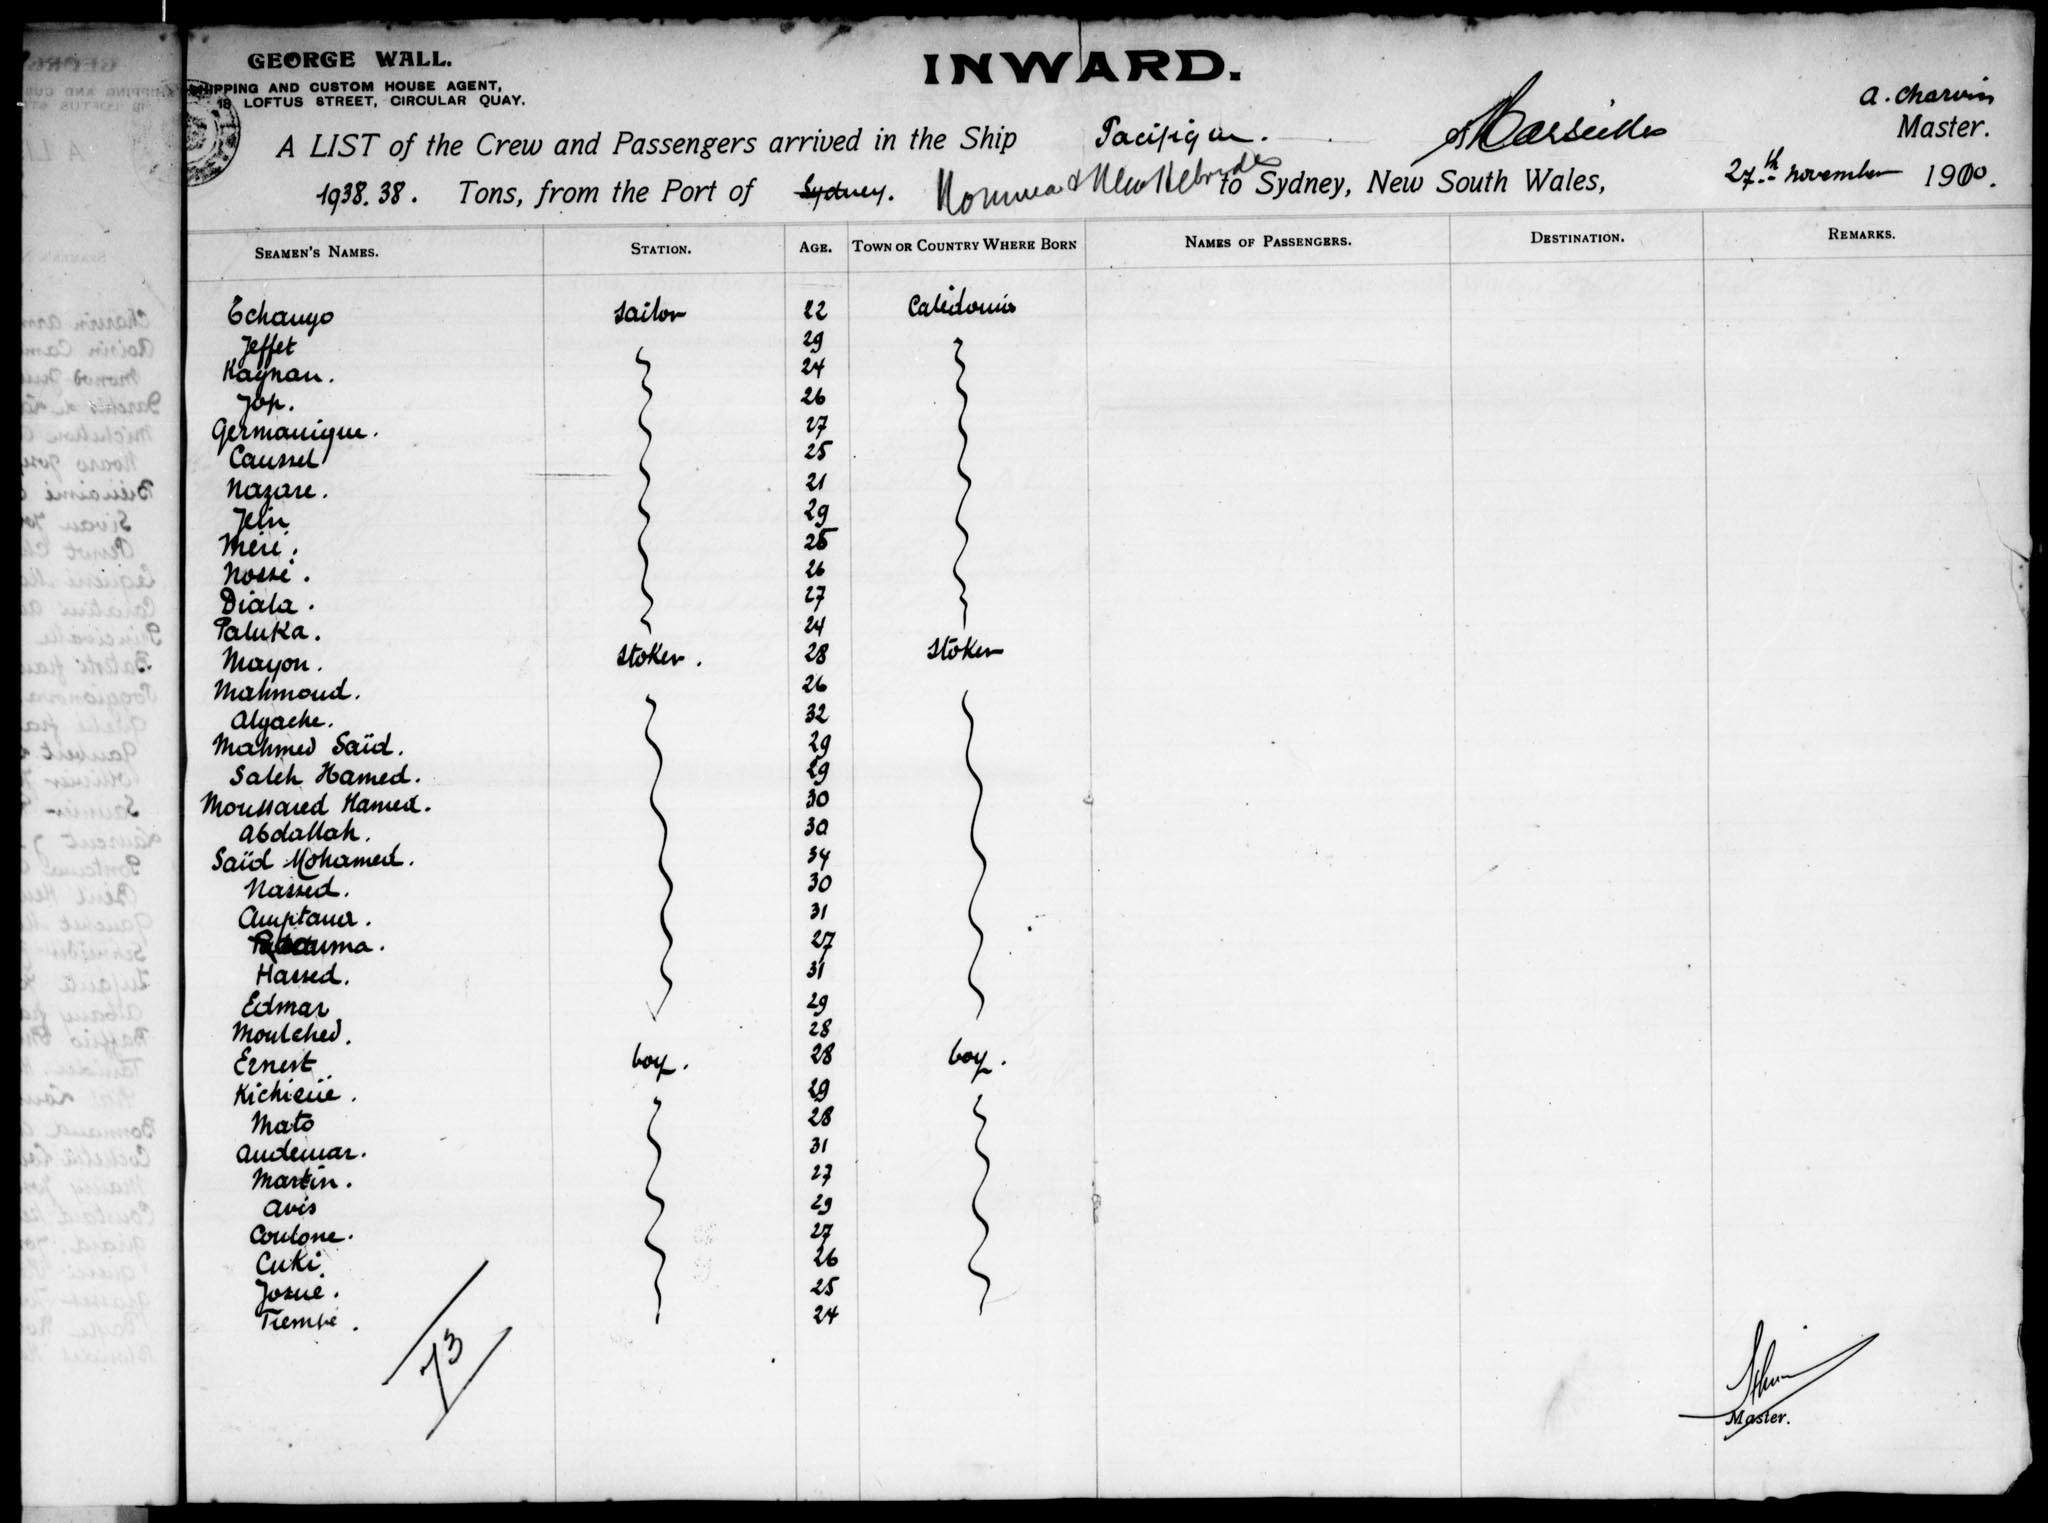 GEORGE WALL.
SHIPPING AND CUSTOM HOUSE AGENT,
18 LOFTUS STREET, CIRCULAR QUAY.
INWARD.
A. Charvin
Master.
A LIST of the Crew and Passengers arrived in the Ship Pacifique. of Marseilles
1938.38. Tons, from the Port of Sydney. Noumea & New Hebrides to Sydney, New South Wales, 27th November 1900.
SEAMEN'S NAMES. STATION. AGE. TOWN OR COUNTRY WHERE BORN NAMES OF PASSENGERS. DESTINATION. REMARKS.
Tchauyo sailor 22 Caledonia
Jeffet 29
Kaynan. 24
Jop. 26
Germanique. 27
Caussel 25
Nazare. 21
Jein 29
Méri. 25
Nossi. 26
Diala. 27
Paluka. 24
Mayon. stoker. 28 stoker
Mahmoud. 26
Algache. 32
Mahmed Saïd. 29
Saleh Hamed. 29
Moussared Hamed. 30
Abdallah. 30
Saïd Mohamed. 34
Nassed. 30
31
27
Hassed. 31
Edmar 29
Moulched. 28
Ernest boy. 28 boy.
29
Mato 28
Audemar. 31
Martin. 27
Avis 29
Coulone. 27
Cuki 26
Josué. 25
Tiembé. 24
73
Master.